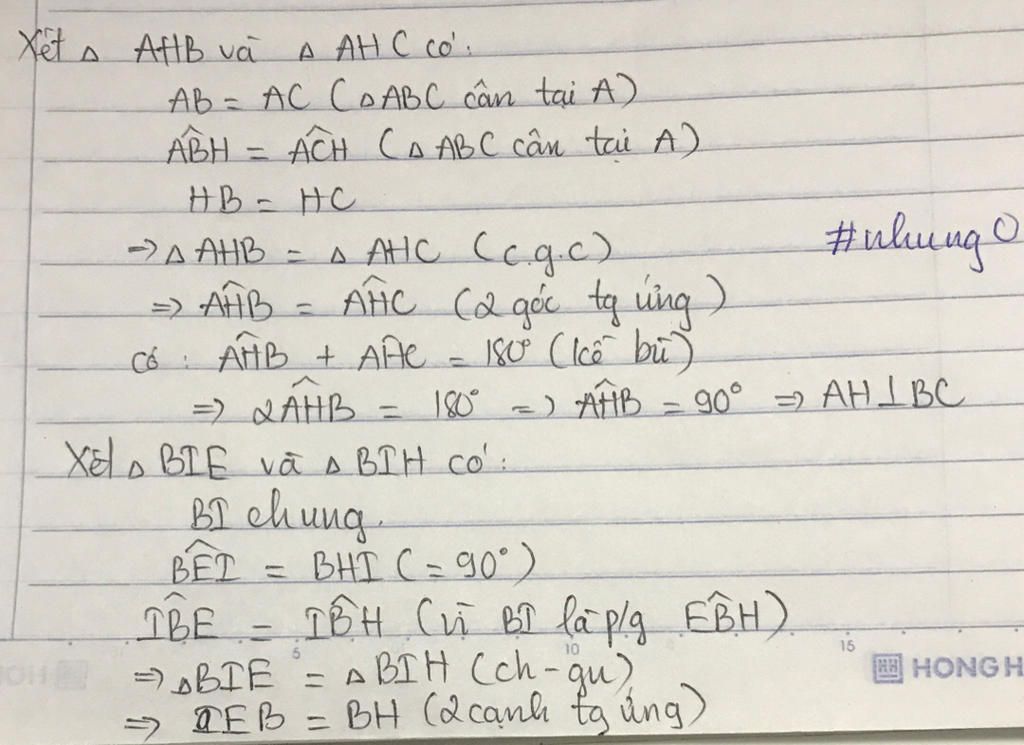 Xét Δ AHB và Δ AHC có:
AB = AC (ΔABC cân tại A)
ABH^ = ACH^ (Δ ABC cân tại A)
HB = HC
=> Δ AHB = Δ AHC (c.g.c)
#nhung
=> AHB^ = AHC^ (2 góc tg ứng)
Có: AHB^ + AHC^ = 180° (kề bù)
=> 2AHB^ = 180° => AHB^ = 90° => AH⊥BC
Xét Δ BIE và Δ BIH có:
BI chung.
BEI^ = BHI (= 90°)
IBE^ = IBH^ (vì BI là p/g EBH^)
5 10 15
=> ΔBIE = ΔBIH (ch-gn)
HONG H
=> EB = BH (2 cạnh tg ứng)